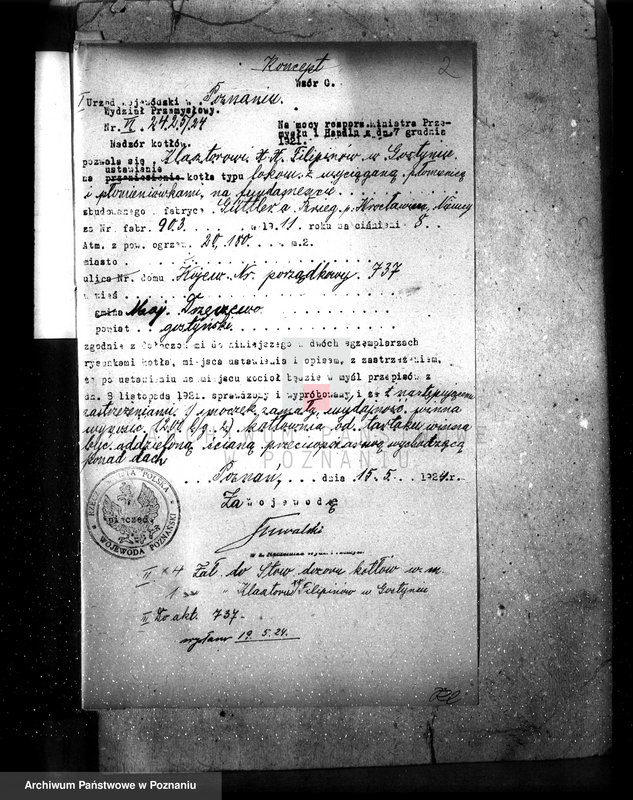 Koncept
Wzór G.
2
I Urząd Wojewódzki w Poznaniu.
Wydział Przemysłowy.
Nr. VI. 2425/24
Nadzór kotłów.
Na mocy rozporz. ministra Prze-
mysłu i Handlu z dn. 7 grudnia
1921.
pozwala się Klasztorowi X.X. Filipinów w Gostyniu
ustawienie
na przeniesienie kotła typu lokom. z wyciąganą płomienicą
i płomieniówkami, na fundamencie
zbudowanego w fabryce Güttler a Brieg p. Wrocławiem, Niemcy
za Nr. fabr. 903 w 1911 roku na ciśnienie 8
Atm. z pow. ogrzew. 20,180 m.2.
miasto
ulica Nr. domu Kojew. Nr. porządkowy. 737
wieś
gmina Maj. Drzęczewo
powiat gostyński
zgodnie z dołączonymi do niniejszego w dwóch egzemplarzach
rysunkami kotła, miejsca ustawienia i opisem, z zastrzeżeniem,
że po ustawieniu na miejscu kocioł będzie w myśl przepisów z
dn. 9 listopada 1921. sprawdzony i wypróbowany i z następującym
zastrzeżeniami. 1) smoczek zamały, wydajność winna
wynosić 1201 l/g. 2) kotłownia od tartaku winna
być oddzieloną ścianą przeciwpożarową wychodzącą
ponad dach
Poznań, dnia 15. 5. 1924.r.
RZECZPOSPOLITA POLSKA
pieczęć
WOJEWODA POZNAŃSKI
Za wojewodę
Suwalski
w z. Naczelnika Wydz. Przemysł.
II x 4 Zał. do Stow dozoru kotłów w m.
1 " " Klasztoru XX Filipinów w Gostyniu
III Do akt. 737.
wysłano 19. 5. 24.
ARCHIWUM PAŃSTWOWE
W POZNANIU
Archiwum Państwowe w Poznaniu